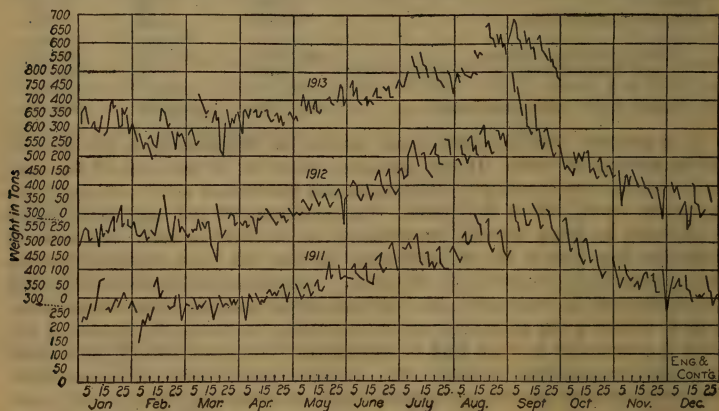 700
650
600
550
800 500
750 450
700 400
650 350
600 300
550 250
500 200
450 150
400 100
350 50
300 0
250
500 200
450 150
400 100
350 50
300 0
250
200
150
100
50
0
Weight in Tons
1913
1912
1911
ENG &
CONT'G
5 15 25 5 15 25 5 15 25 5 15 25 5 15 25 5 15 25 5 15 25 5 15 25 5 15 25 5 15 25 5 15 25 5 15 25
Jan Feb. Mar. Apr. May June July Aug. Sept Oct. Nov. Dec.